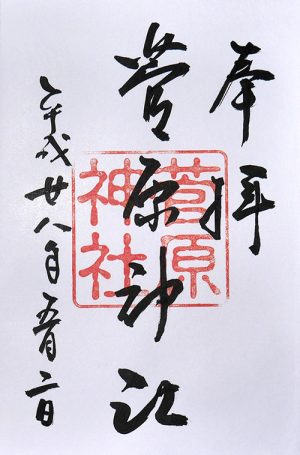 奉拝
菅原神社
菅原神社
平成廿八年五月二日